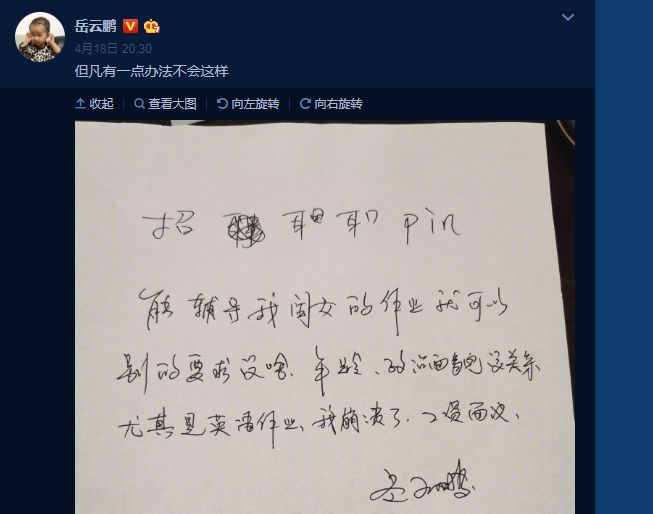 岳云鹏
4月18日 20:30
但凡有一点办法不会这样
收起 查看大图 向左旋转 向右旋转
招 Pin
能辅导我闺女的作业就可以
别的要求没啥、年龄、政治面貌没关系
尤其是英语作业、我崩溃了、工资面议、
岳云鹏